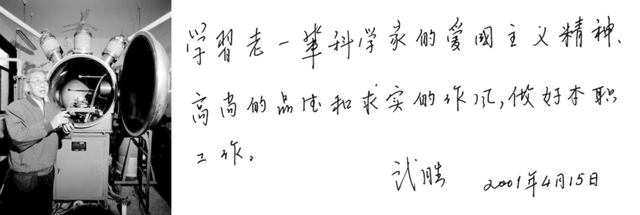 学習老一辈科学家的爱國主义精神、
高尚的品德和求实的作风，做好本职
工作。
武胜 2001年4月15日